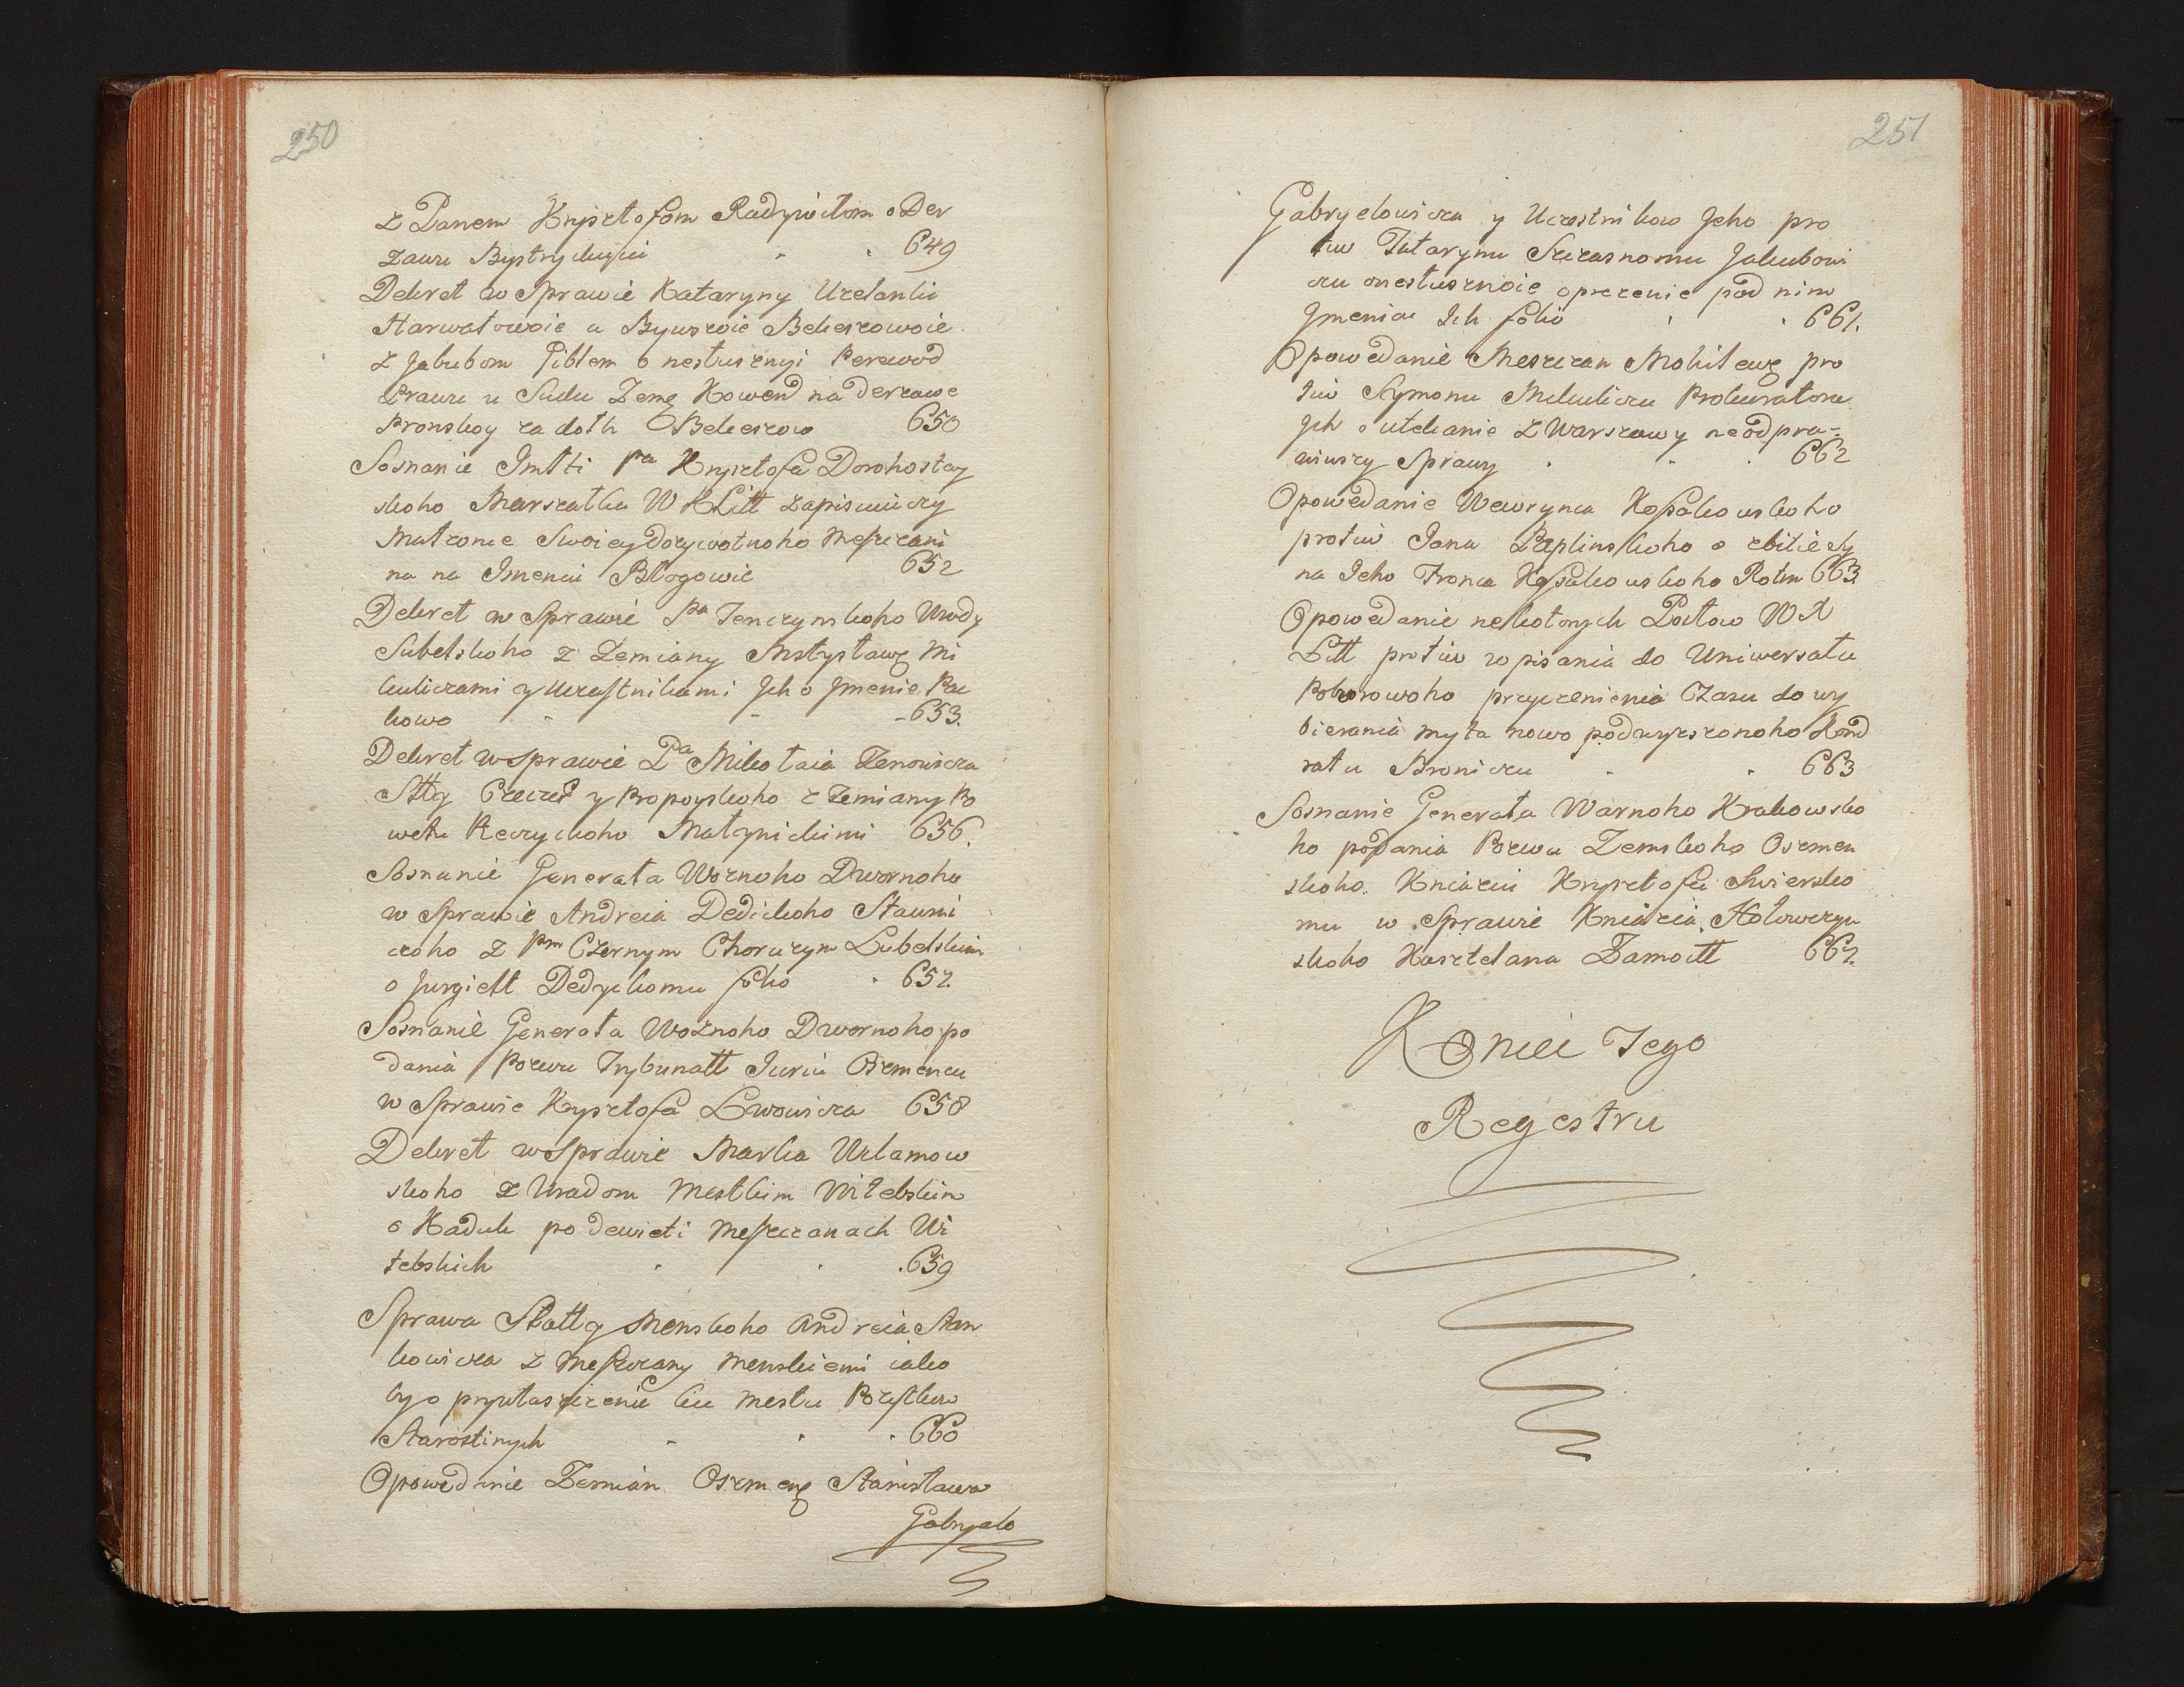 250
z Panem Krysztofom Radywiłom o Der
zawu Bystryckuiu 649
Dekret w Sprawie Kataryny Uzelanki
Harwatowoie a Bywszoie Bekeszowoie
z Jakubom Giblem o nesłusznyi Perewod
Prawu u Sudu Zemę Kowen na derzawe
Pronskoy za dolh Bekeszow 650
Soznanie Jmtti pa Krysztofa Dorohostay
skoho Marszałka W X Litt zapisuiuczy
Małzonce Swoiey dozywotnoho Meszcani
na na Imeniu Błogowic 652
Dekret w Sprawie Pa Tenczynskoho Wwody
Lubelskoho z Zemiany Mstysławę Mi
kuliczami y Uczastnikami Jch o Jmenie Pac
kowo 653.
Dekret w Sprawie Pa Mikołaia Zenowicza
Sttę Czeczer y Propoyskoho z Zemiany Po
wetu Reczyckoho Małynickimi 656.
Soznanie Generała Woznoho Dwornoho
w Sprawie Andreia Dedickoho Stawni
czoho z Pm Czernym Choruzym Lubelskim
o Jurgielt Dedyckomu folio 657.
Soznanie Generała Woznoho Dwornoho po
dania Pozwu Trybunalł Juriu Oszmencu
w Sprawie Krysztofa Lwowicza 658
Dekret w Sprawie Marka Wrlamow
skoho z Uradom Mestkim Witebskim
o Kaduk po dewieti Meszczanach Wi
tebskich 659
Sprawa Stattę Menskoho Andreia Stan
kowicza z Meszczany Menskiemi iako
by o prywłaszczenie ku Mestu Pozytkow
Starostinych 660
Opowedanie Zemian Oszmenę Stanisława
Gabryelo
251
Gabryelowicza y Uczestnikow Jeho pro
tiw Tatarynu Szczasnomu Jakubowi
czu o nesłusznoie oprezenie pod nim
Jmenia Jch folio 661.
Opowedanie Meszczan Mohilewę pro
tiw Szymonu Mikuliczu Prokuratoru
Jch o utekanie z Warszawy ne odpra-
wiwszy Sprawy 662
Opowedanie Wawrynca Kossakowskoho
protiw Jana Peplinskoho o zbitie Sy
na Jeho Fronca Kossakowskoho Rotm 663.
Opowedanie nekotorych Posłow W X
Litt protiw wpisania do Uniwersału
Poborowoho pryczenienia Czasu do wy
bierania myta nowo podwyszonoho Kond
ratu Broniczu 663
Soznanie Generała Woznoho Krakowsko
ho podania Pozwu Zemskoho Oszmen
skoho Kniaziu Krysztofu Swiersko
mu w Sprawie Kniazia Hołowczyn
skoho Kasztelana Zamoitt 667.
Koniec Tego
Regestru